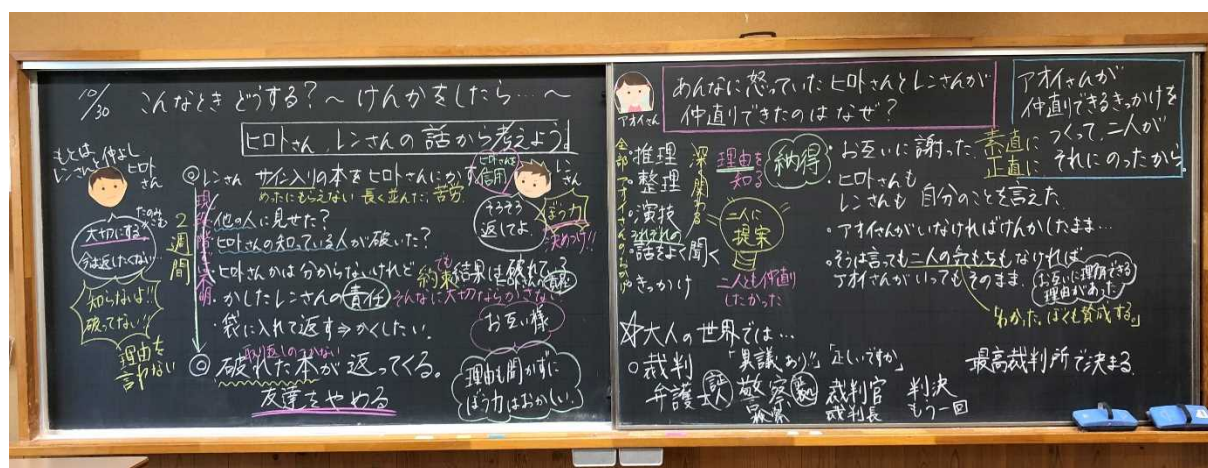 10/30
こんなとき どうする？～けんかをしたら…～
ヒロトさん、レンさんの話から考えよう。
もとは
レンさんと仲よし
ヒロト
さん
大切にする。
今は返したくない…
知らないよ!!
破ってない!!
理由を
言わない
2週間
◎レンさん サイン入りの本をヒロトさんにかす
めったにもらえない 長く並んだ、苦労
現段階で不明
・他の人に見せた？
・ヒロトさんの知っている人が破いた？
・ヒロトさんかは分からないけれど 約束 結果は破れて
・かしたレンさんの責任 そんなに大切ならかさない
・袋に入れて返す⇒かくしたい。
取り返しのつかない
◎破れた本が返ってくる。
友達をやめる
ヒロトさんは
信用
そろそろ
返してよ。
ぼう力
決めつけ!!
お互い様
理由も聞かずに
ぼう力はおかしい。
アオイさん
あんなに怒っていたヒロトさんとレンさんが
仲直りできたのはなぜ？
アオイさんが
仲直りできるきっかけを
つくって、二人が
それにのったから。
・推理
整理
・演技
それぞれの
・話をよく聞く
・きっかけ
深く関わる
理由を
知る
納得
二人に
提案
二人とも仲直り
したかった
・お互いに謝った。素直に
正直に
・ヒロトさんも
レンさんも 自分のことを言えた。
・アオイさんがいなければけんかしたまま…
・そうは言っても二人の気もちもなければ
アオイさんがいってもそのまま。
お互いに理解できる
理由があった
「わかった。ぼくも賛成する。」
☆大人の世界では…
○裁判 「異議あり!!」「正しいですか」
弁護士 警察 裁判官 判決
裁判長 もう一回
最高裁判所で決まる。